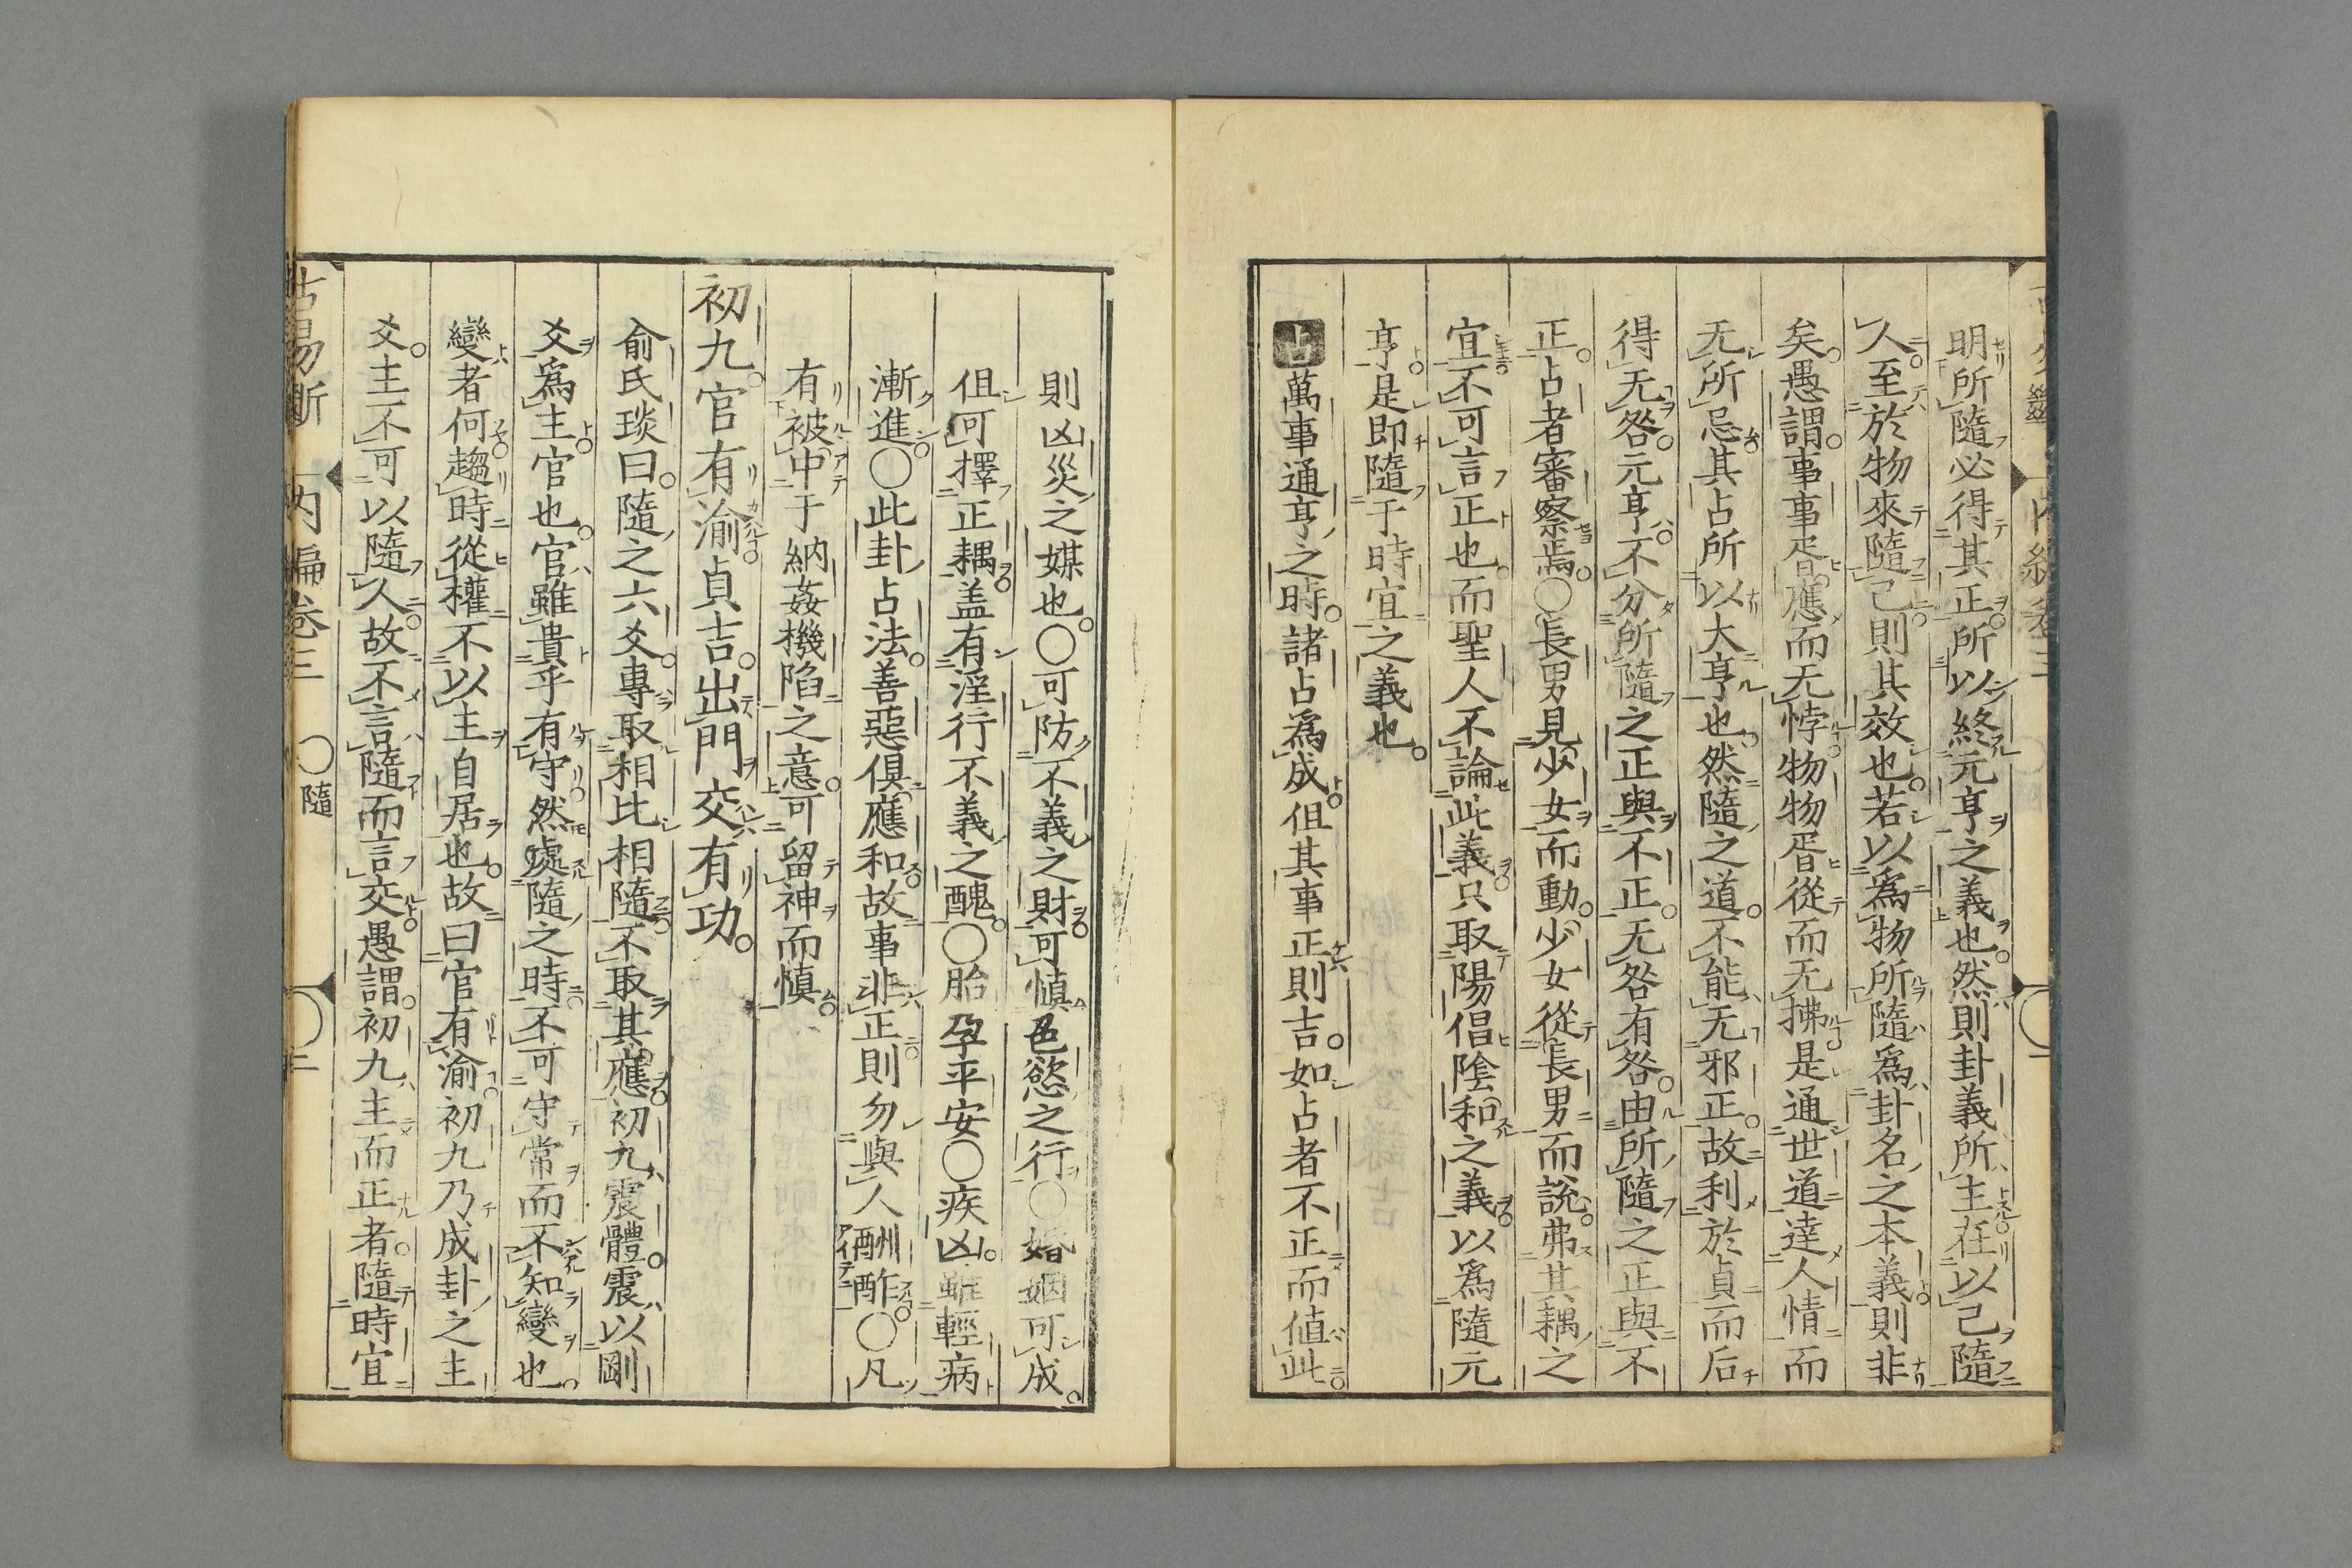 明所隨必得其正所以終元亨之義也然則卦義所主在以己隨
人至於物來隨己則其效也若以爲物所隨爲卦名之本義則非
矣愚謂事事胥應而无悖物物胥從而无拂是通世道達人情而
无所忌其占所以大亨也然隨之道不能无邪正故利於貞而后
得无咎元亨不分所隨之正與不正无咎有咎由所隨之正與不
正占者審察焉○長男見少女而動少女從長男而說弗其耦之
宜不可言正也而聖人不論此義只取陽倡陰和之義以爲隨元
亨是即隨于時宜之義也
占萬事通亨之時諸占爲成但其事正則吉如占者不正而値此
則凶災之媒也○可防不義之財可慎色慾之行○婚姻可成
但可擇正耦盖有淫行不義之醜○胎孕平安○疾凶雖輕病
漸進○此卦占法善惡俱應和故事非正則勿與人酬酢○凡
有被中于納姦機陷之意可留神而慎
初九官有渝貞吉出門交有功
俞氏琰曰隨之六爻專取相比相隨不取其應初九震體震以剛
爻爲主官也官雖貴乎有守然處隨之時不可守常而不知變也
變者何趨時從權不以主自居也故曰官有渝初九乃成卦之主
爻主不可以隨人故不言隨而言交愚謂初九主而正者隨時宜
古易斷 内編卷三 ○隨 二